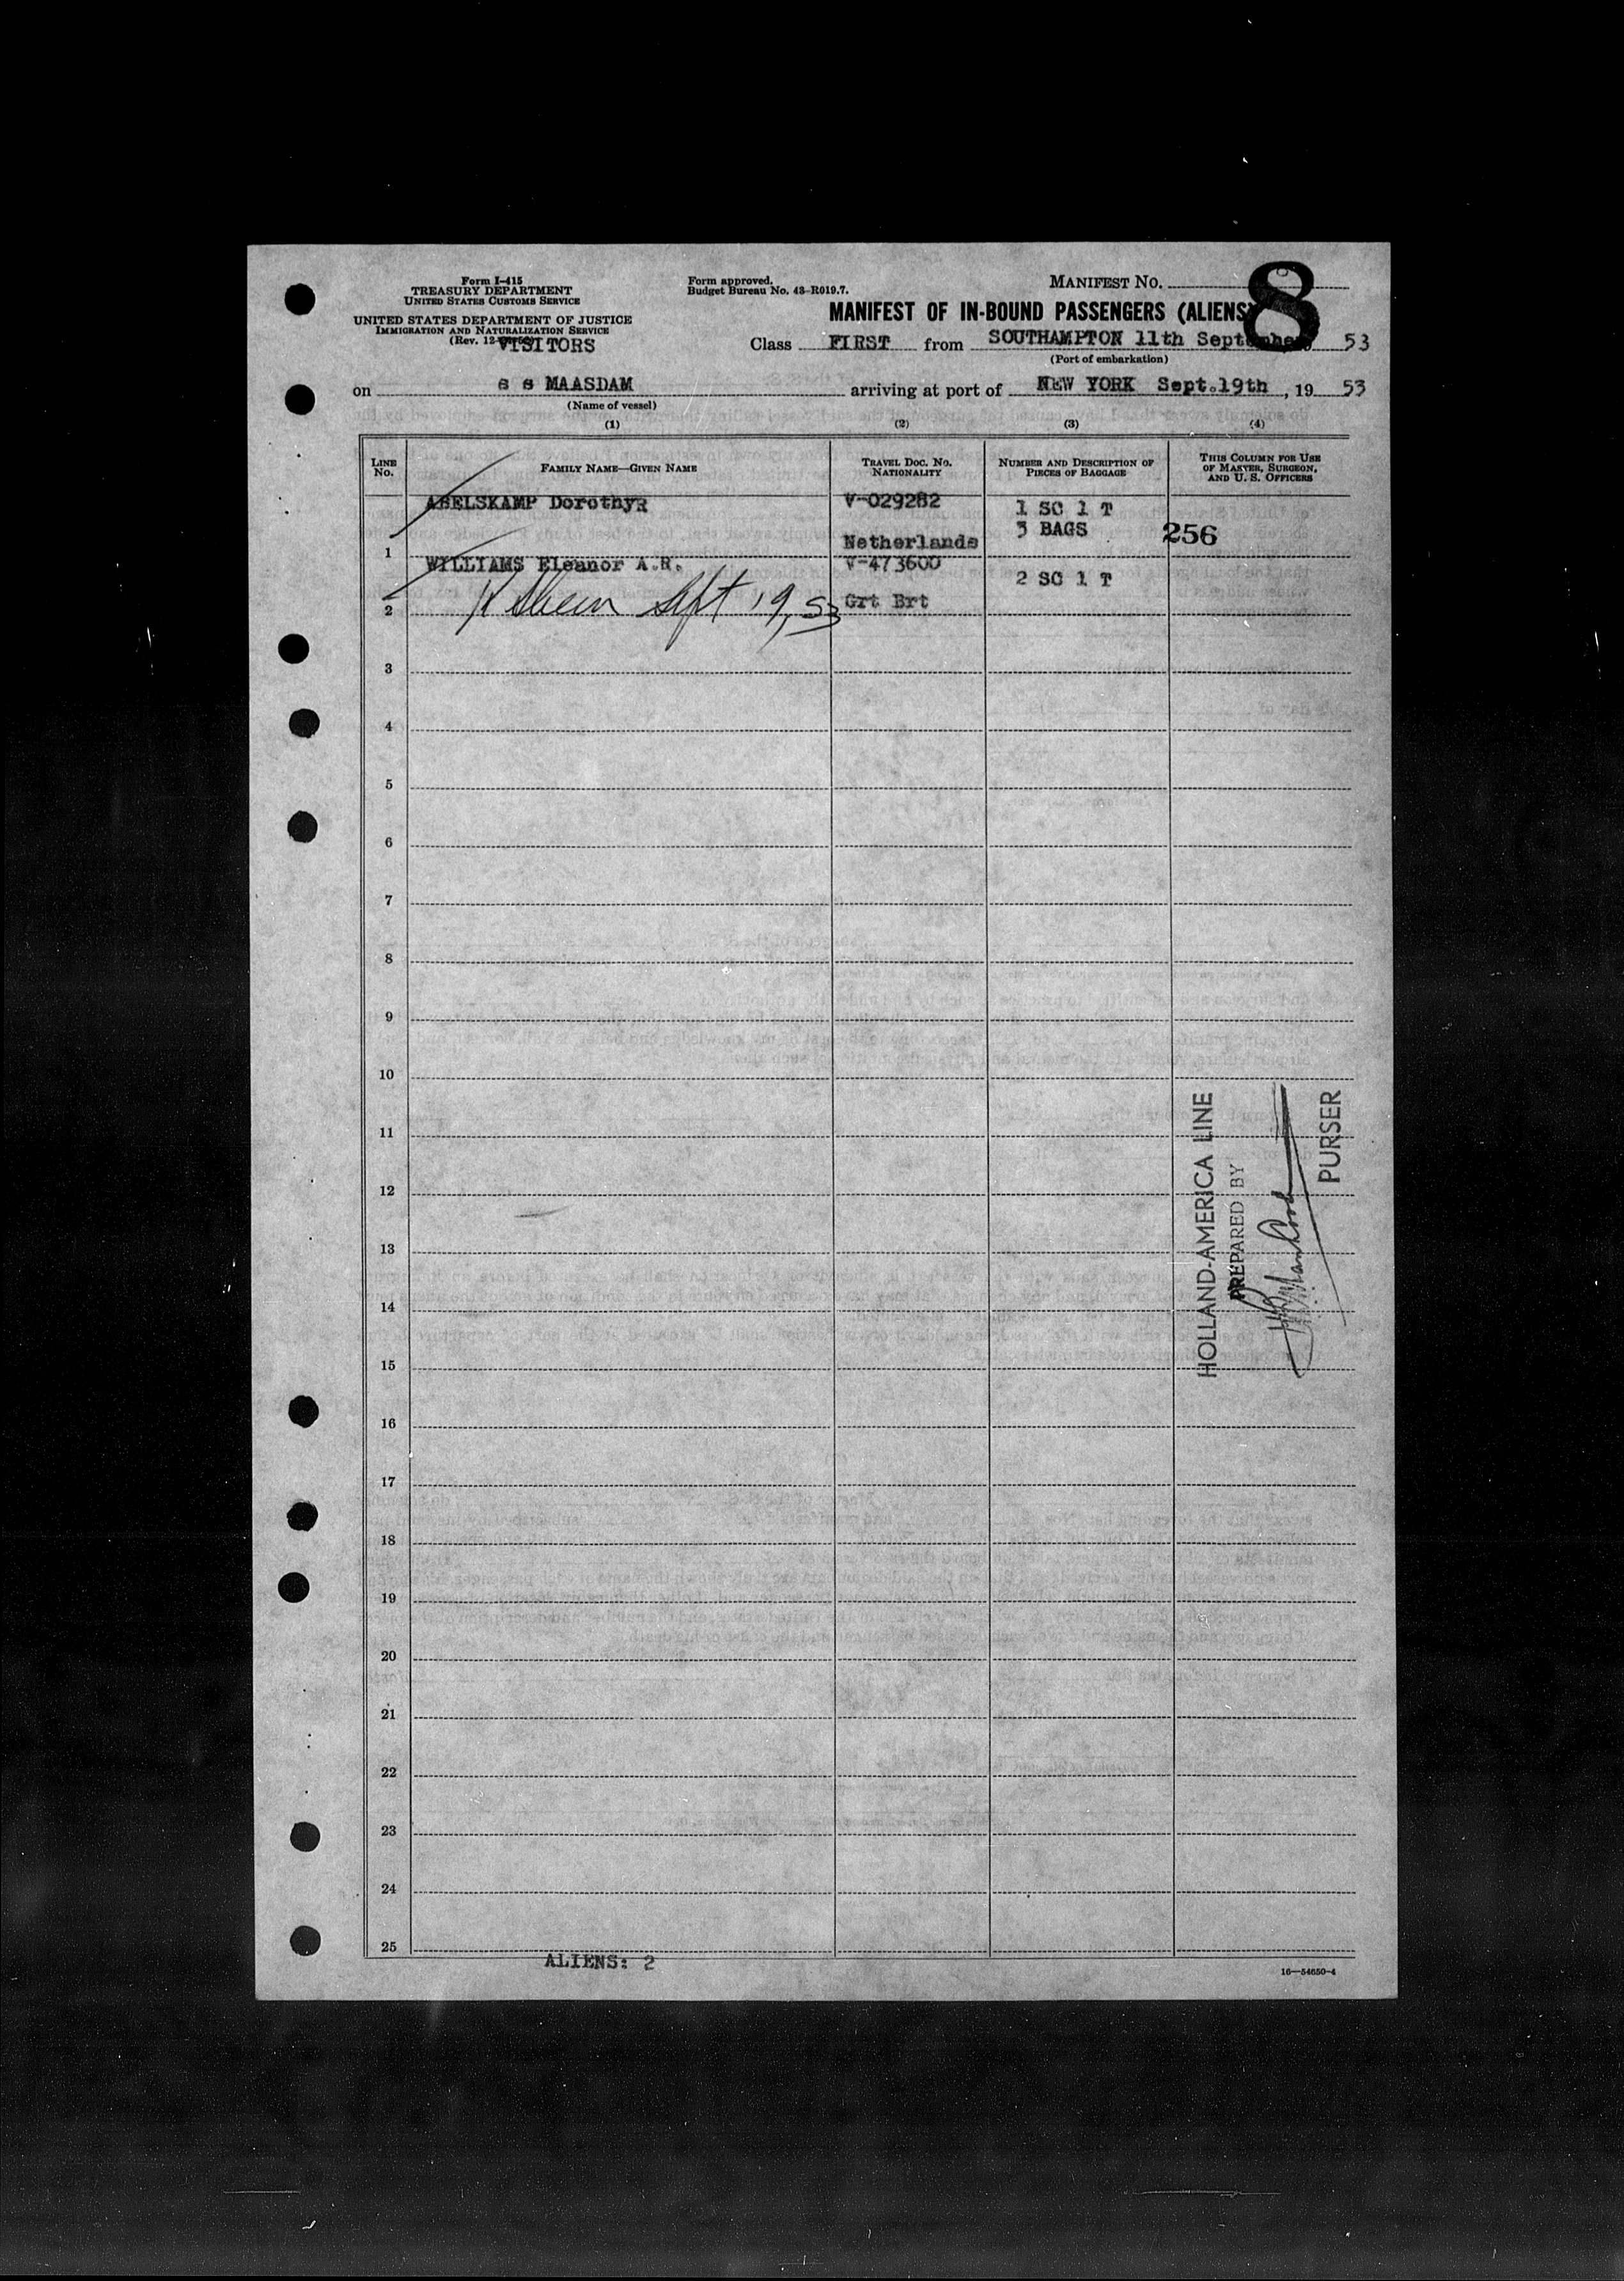 Form I-415
TREASURY DEPARTMENT
UNITED STATES CUSTOMS SERVICE
UNITED STATES DEPARTMENT OF JUSTICE
IMMIGRATION AND NATURALIZATION SERVICE
(Rev. 12-
VISITORS
Form approved.
Budget Bureau No. 43-R019.7.
MANIFEST NO.
8
MANIFEST OF IN-BOUND PASSENGERS (ALIENS)
Class FIRST from SOUTHAMPTON 11th September 53
(Port of embarkation)
on s s MAASDAM arriving at port of NEW YORK Sept.19th, 19 53
(Name of vessel)
(1) (2) (3) (4)
LINE NO. FAMILY NAME—GIVEN NAME TRAVEL DOC. NO. NATIONALITY NUMBER AND DESCRIPTION OF PIECES OF BAGGAGE THIS COLUMN FOR USE OF MASTER, SURGEON, AND U. S. OFFICERS
ABELSKAMP DorothyR V-029282 1 SC 1 T
3 BAGS
1 Netherlands 256
WILLIAMS Eleanor A.R. V-473600
2 SC 1 T
2 Sept 19, 53 Grt Brt
3
4
5
6
7
8
9
10
11
12
13
14
15
16
17
18
19
20
21
22
23
24
25
HOLLAND-AMERICA LINE
PREPARED BY
PURSER
ALIENS: 2
16—54650-4